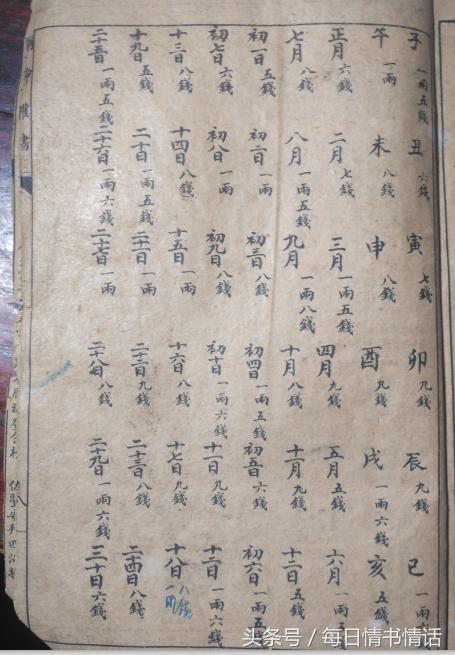 子 一兩五錢 丑 六錢 寅 七錢 卯 九錢 辰 九錢 巳 一兩
午 一兩 未 八錢 申 八錢 酉 九錢 戌 一兩六錢 亥 五錢
正月 六錢 二月 七錢 三月 一兩五錢 四月 九錢 五月 五錢 六月 一兩五
七月 八錢 八月 一兩五錢 九月 一兩八錢 十月 八錢 十一月 九錢 十二月 五錢
初一日 五錢 初二日 一兩 初三日 八錢 初四日 一兩五錢 初五日 六錢 初六日 一兩五錢
初七日 六錢 初八日 一兩 初九日 八錢 初十日 一兩六錢 十一日 九錢 十二日 一兩六錢
十三日 八錢 十四日 八錢 十五日 一兩 十六日 八錢 十七日 九錢 十八日 一兩八錢
十九日 五錢 二十日 一兩五錢 二十一日 一兩 二十二日 九錢 二十三日 八錢 二十四日 八錢
二十五日 一兩五錢 二十六日 一兩六錢 二十七日 一兩 二十八日 八錢 二十九日 一兩六錢 三十日 六錢
書
头条号 / 每日情书情话